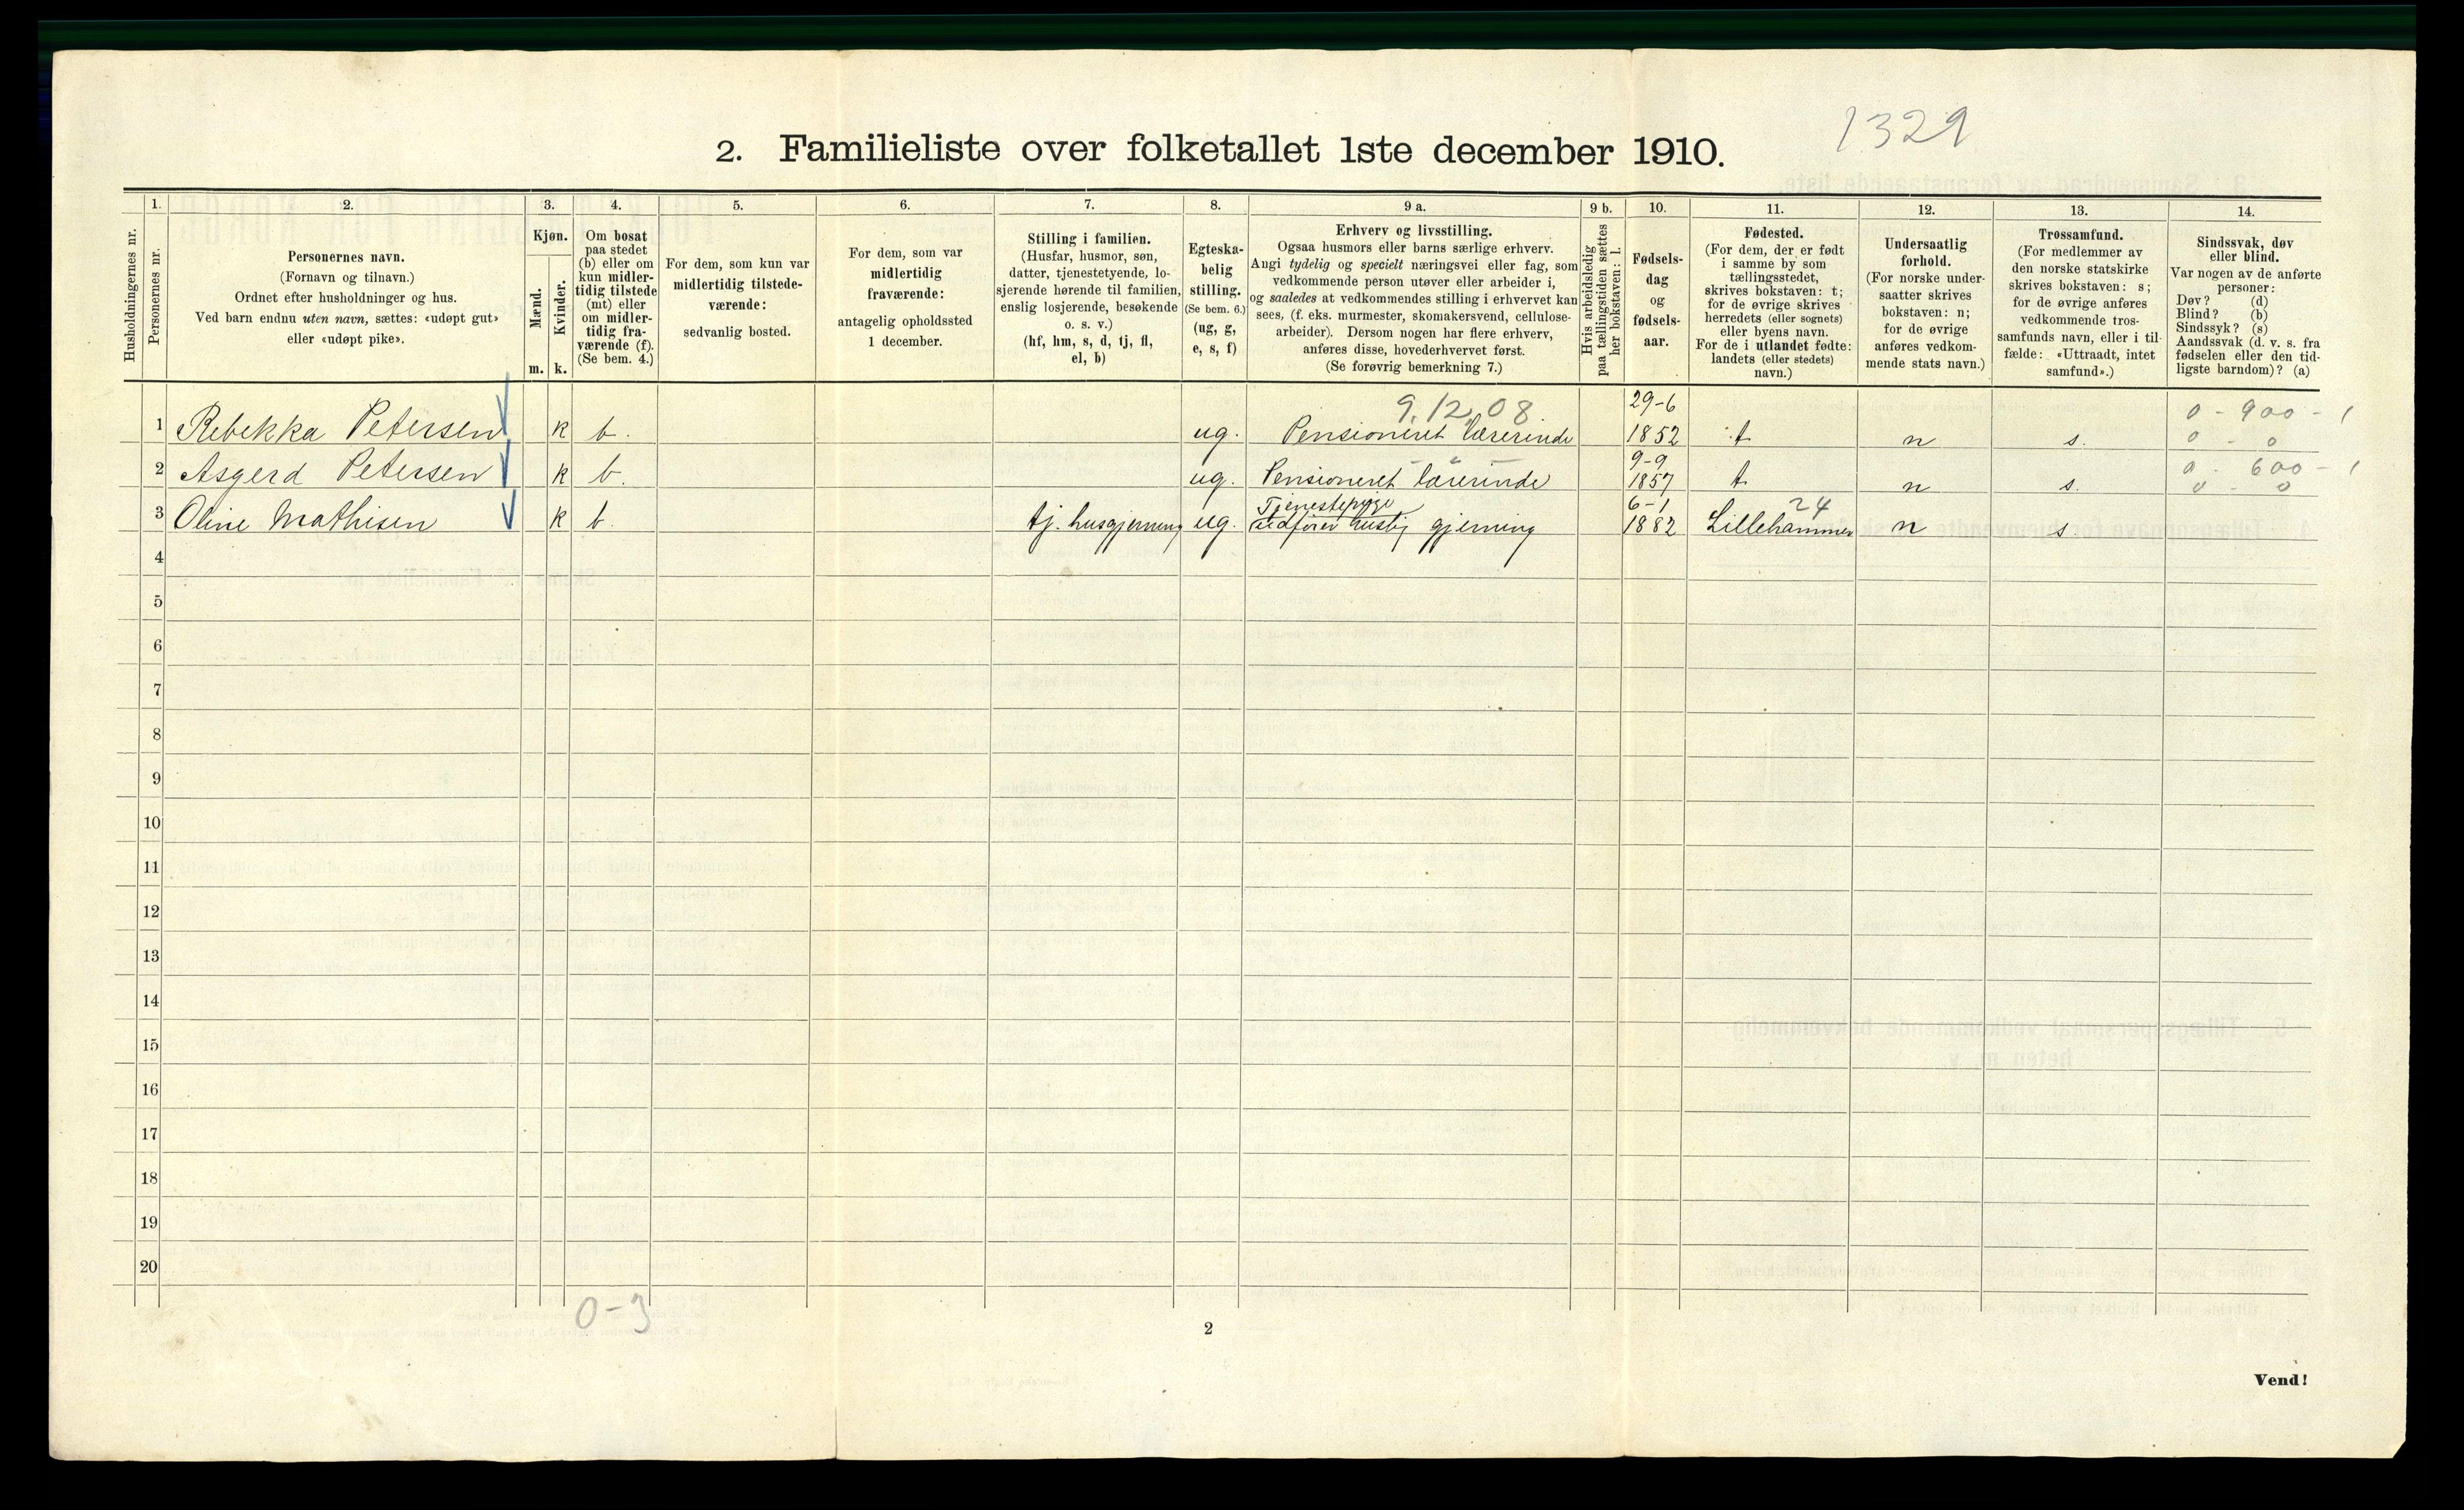 1329
2. Familieliste over folketallet 1ste december 1910.
Husholdningernes nr.
1.
Personernes nr.
2.
Personernes navn.
(Fornavn og tilnavn.)
Ordnet efter husholdninger og hus.
Ved barn endnu uten navn, sættes: «udøpt gut»
eller «udøpt pike».
3.
Kjøn.
Mænd.
Kvinder.
m. k.
4.
Om bosat
paa stedet
(b) eller om
kun midler-
tidig tilstede
(mt) eller
om midler-
tidig fra-
værende (f).
(Se bem. 4.)
5.
For dem, som kun var
midlertidig tilstede-
værende:
sedvanlig bosted.
6.
For dem, som var
midlertidig
fraværende:
antagelig opholdssted
1 december.
7.
Stilling i familien.
(Husfar, husmor, søn,
datter, tjenestetyende, lo-
sjerende hørende til familien,
enslig losjerende, besøkende
o. s. v.)
(hf, hm, s, d, tj, fl,
el, b)
8.
Egteska-
belig
stilling.
(Se bem. 6.)
(ug, g,
e, s, f)
9 a.
Erhverv og livsstilling.
Ogsaa husmors eller barns særlige erhverv.
Angi tydelig og specielt næringsvei eller fag, som
vedkommende person utøver eller arbeider i,
og saaledes at vedkommendes stilling i erhvervet kan
sees, (f. eks. murmester, skomakersvend, cellulose-
arbeider). Dersom nogen har flere erhverv,
anføres disse, hovederhvervet først.
(Se forøvrig bemerkning 7.)
9 b.
Hvis arbeidsledig
paa tællingstiden sættes
her bokstaven: l.
10.
Fødsels-
dag
og
fødsels-
aar.
11.
Fødested.
(For dem, der er født
i samme by som
tællingsstedet,
skrives bokstaven: t;
for de øvrige skrives
herredets (eller sognets)
eller byens navn.
For de i utlandet fødte:
landets (eller stedets)
navn.)
12.
Undersaatlig
forhold.
(For norske under-
saatter skrives
bokstaven: n;
for de øvrige
anføres vedkom-
mende stats navn.)
13.
Trossamfund.
(For medlemmer av
den norske statskirke
skrives bokstaven: s;
for de øvrige anføres
vedkommende tros-
samfunds navn, eller i til-
fælde: «Uttraadt, intet
samfund».)
14.
Sindssvak, døv
eller blind.
Var nogen av de anførte
personer:
Døv? (d)
Blind? (b)
Sindssyk? (s)
Aandssvak (d. v. s. fra
fødselen eller den tid-
ligste barndom)? (a)
9.12,08 29-6 0-900-1
1 Rebekka Petersen k b. ug. Pensioneret lærerinde 1852 t n s. 0-0
9-9 0-600-1
2 Asgerd Petersen k b. ug. Pensioneret lærerinde 1857 t n s. 0-0
Tjenestepige 6-1 24
3 Oline Mathisen k b. tj. husgjerning ug. huslig gjerning 1882 Lillehammer n s.
4
5
6
7
8
9
10
11
12
13
14
15
16
17
18
19
20
0-3
2
Vend!